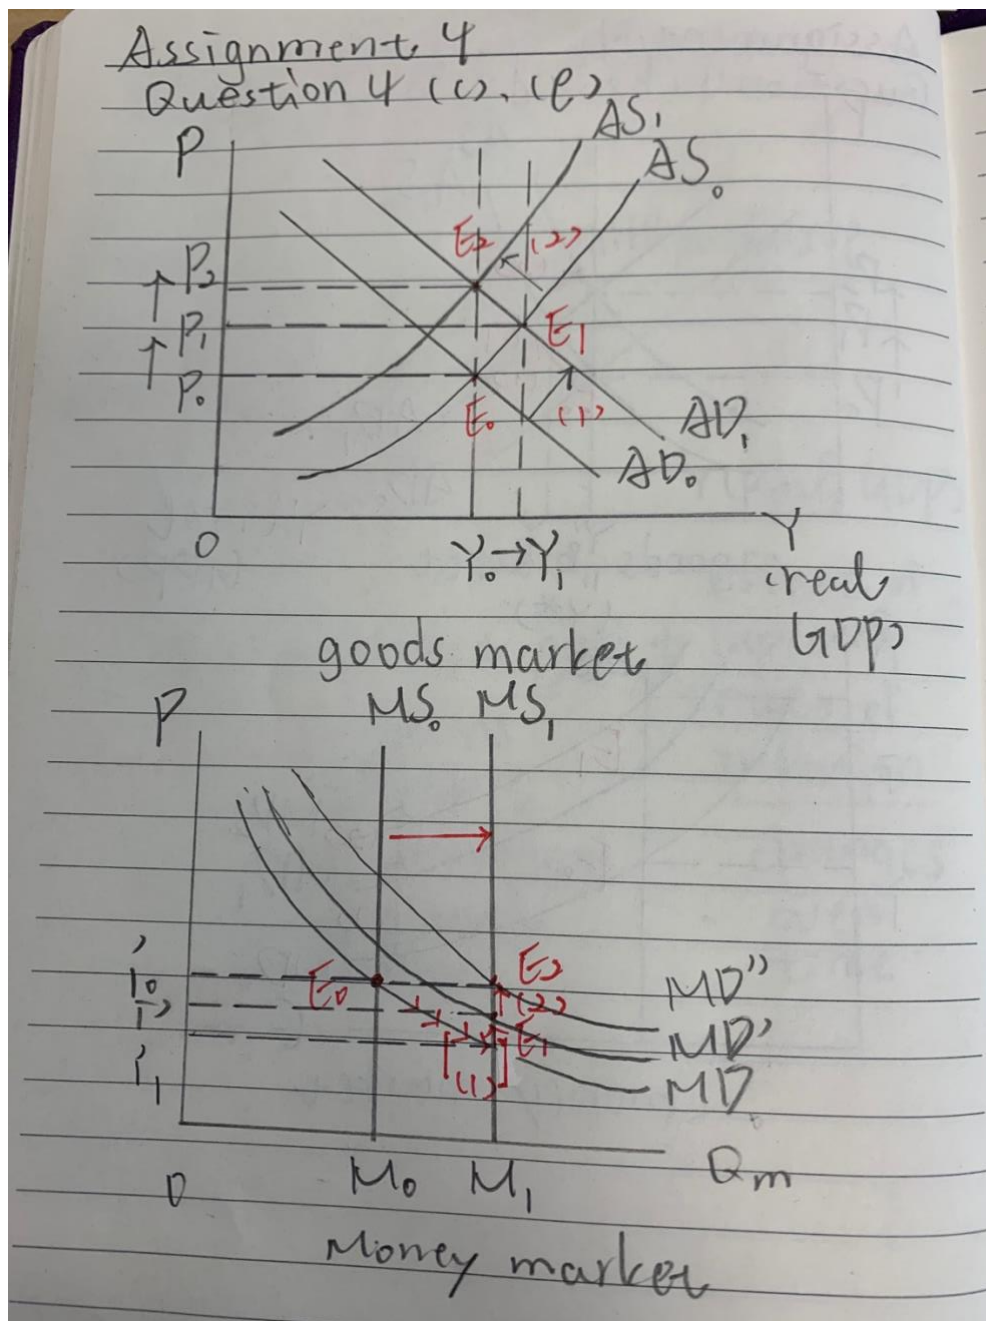 Assignment 4
Question 4 (c), (e)
P
AS₁
AS₀
E₂
(2)
P₂
P₁
E₁
P₀
E₀
(1)
AD₁
AD₀
0
Y₀→Y₁
Y
(real GDP)
goods market
P
MS₀ MS₁
i₀
E₀
E₂
MD''
(2)
i'
MD'
E₁
i₁
(1)
MD
M₀ M₁
Qm
0
Money market